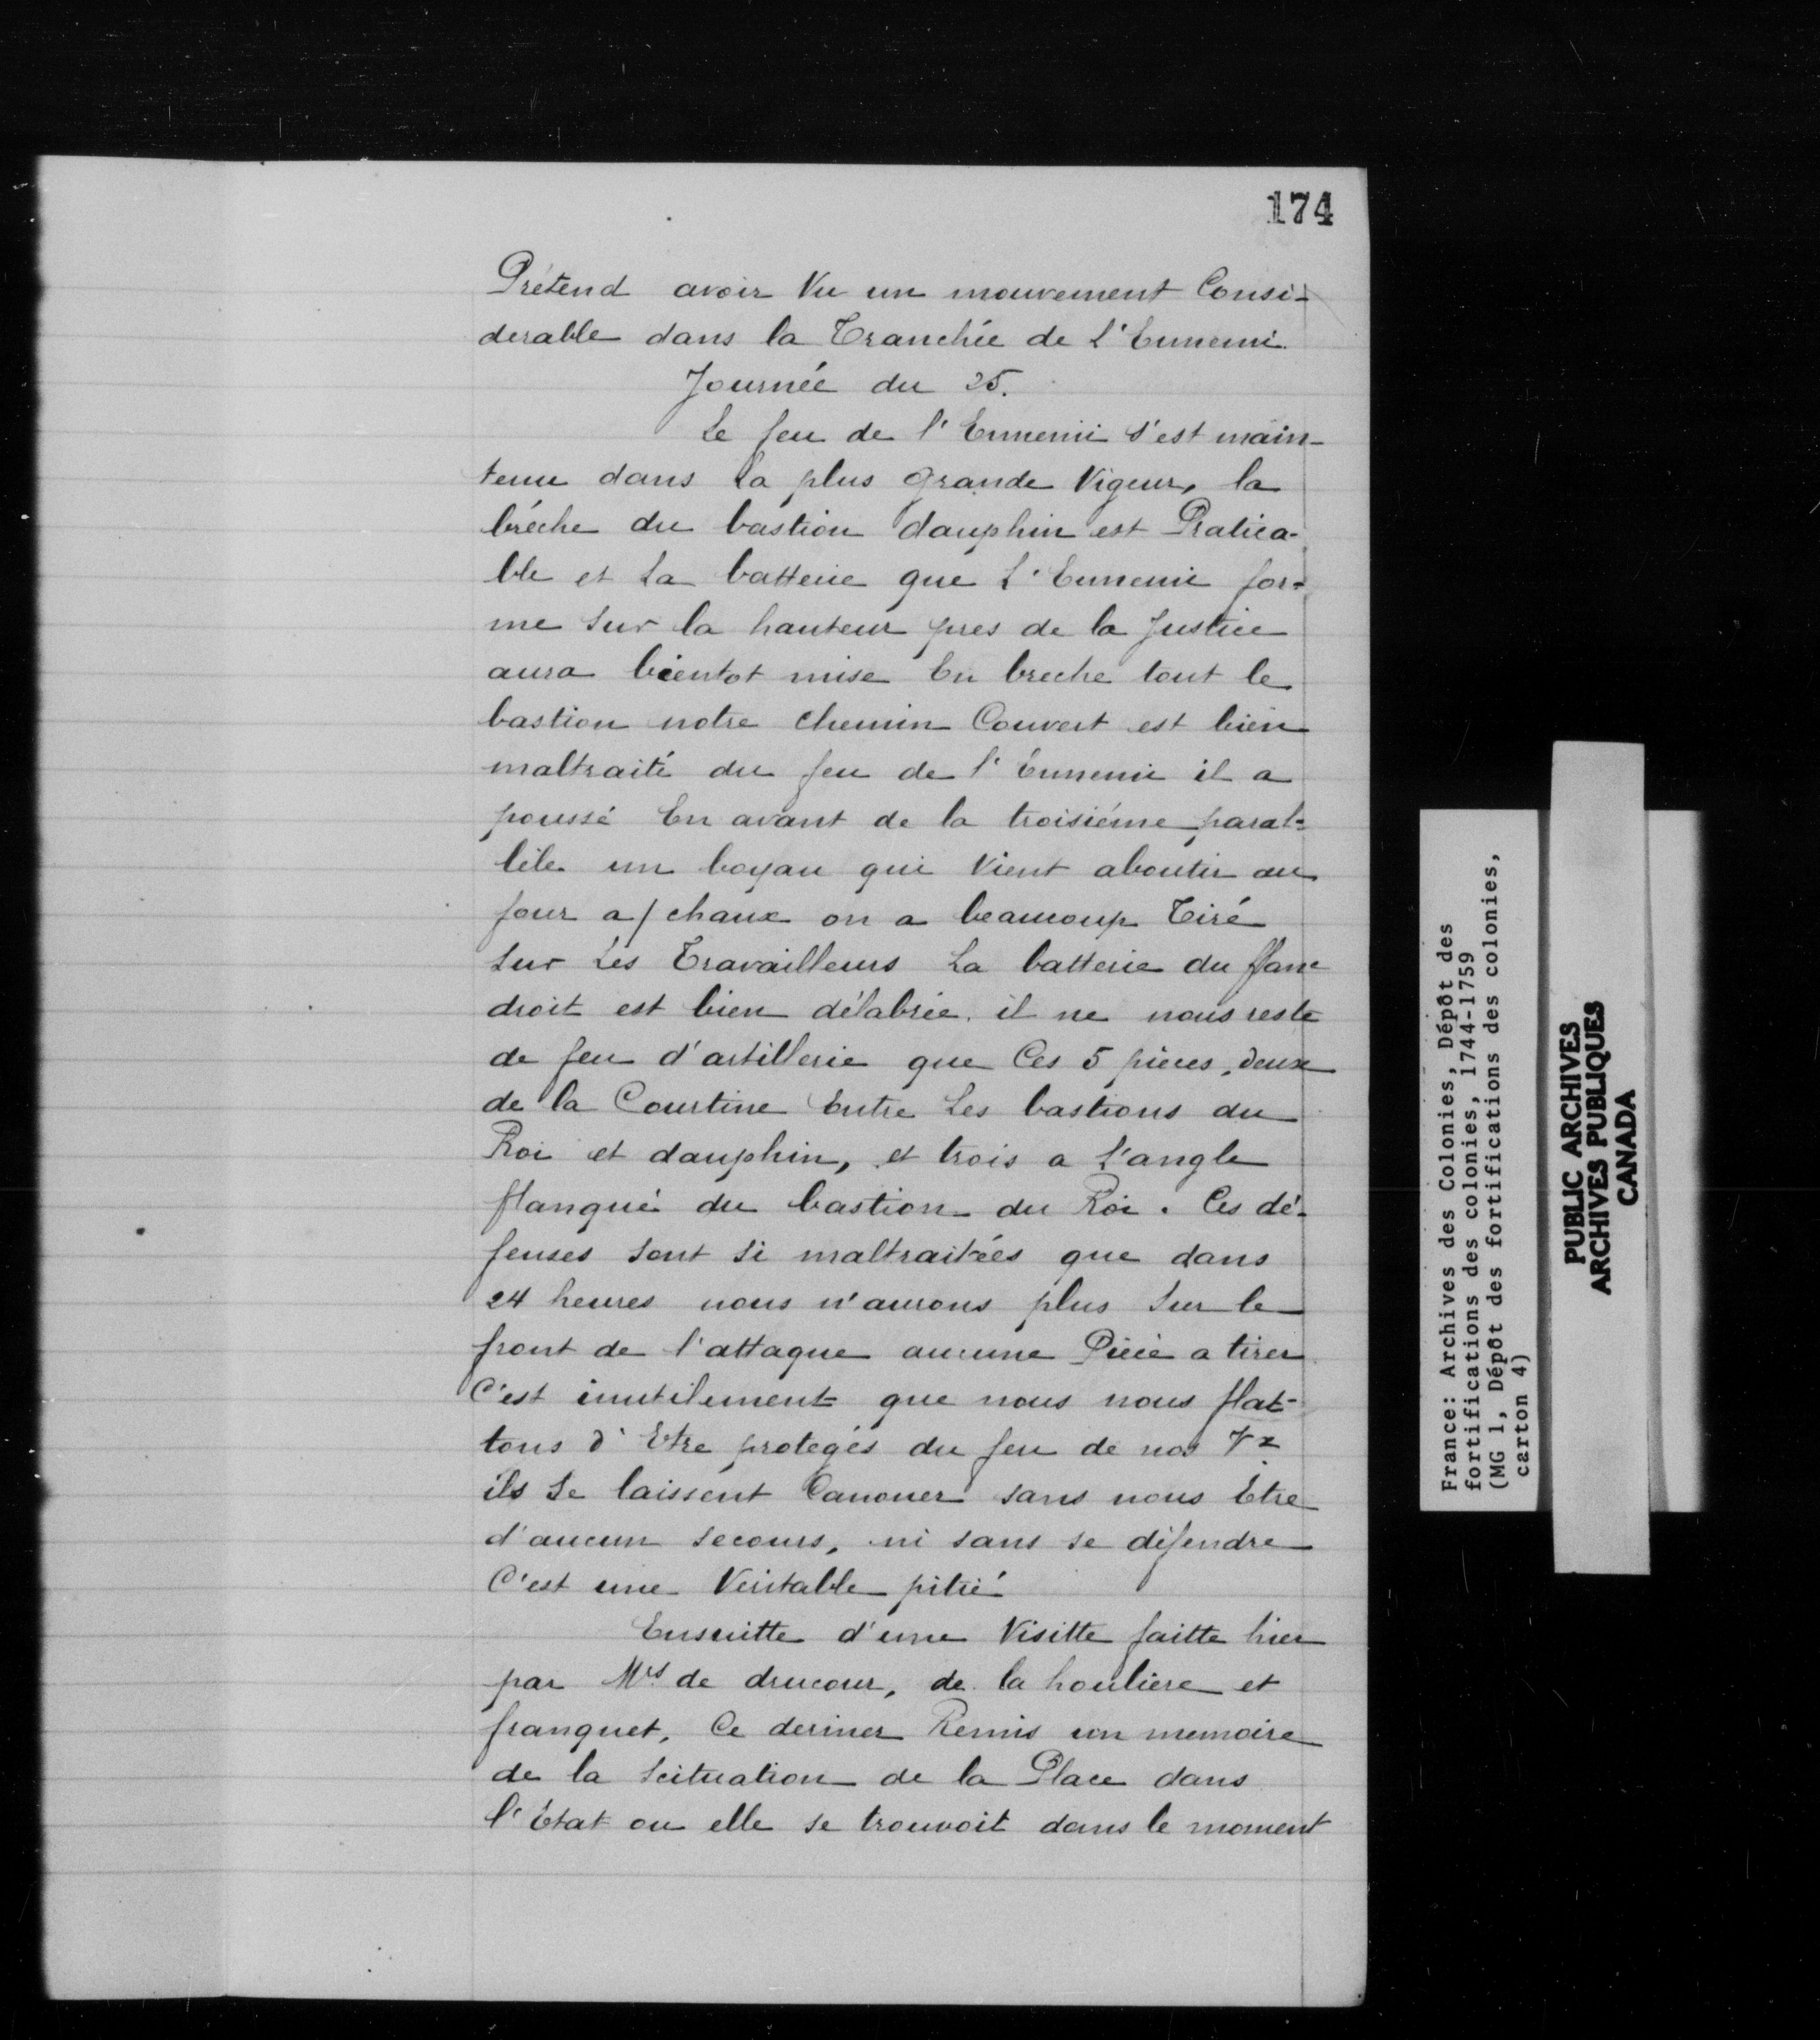 174
Prétend avoir Vu un mouvement Consi-
derable dans la Tranchée de l'Ennemi.
Journée du 25.
Le feu de l'Ennemi s'est main-
tenu dans la plus grande Vigeur, la
brêche du bastion dauphin est Pratica-
ble et la batterie que l'Ennemi for-
me sur la hauteur pres de la Justice
aura bientot mise En breche tout le
bastion notre chemin Couvert est bien
maltraité du feu de l'Ennemi il a
poussé En avant de la troisiéme paral-
lèle un boyau qui Vient aboutir au
four a/chaux on a beaucoup Tiré
sur les Travailleurs La batterie du flanc
droit est bien délabrée. il ne nous reste
de feu d'artillerie que Ces 5 pieces, deux
de la Courtine Entre les bastions du
Roi et dauphin, et trois a l'angle
flanqué du bastion du Roi. Ces dé-
fenses sont si maltraitées que dans
24 heures nous n'aurons plus sur le
front de l'attaque aucune Piéce a tirer
C'est inutilement que nous nous flat-
tons d'Etre protegés du feu de nos Vx
ils se laissent Canoner sans nous Etre
d'aucun secours, ni sans se défendre
C'est une Veritable pitié
Ensuitte d'une Visitte faitte hier
par Mrs de drucour, de la houliere et
franquet, Ce deriner Remis un memoire
de la scituation de la Place dans
l'Etat ou elle se trouvoit dans le moment
France: Archives des Colonies, Dépôt des
fortifications des colonies, 1744-1759
(MG 1, Dépôt des fortifications des colonies,
carton 4)
PUBLIC ARCHIVES
ARCHIVES PUBLIQUES
CANADA